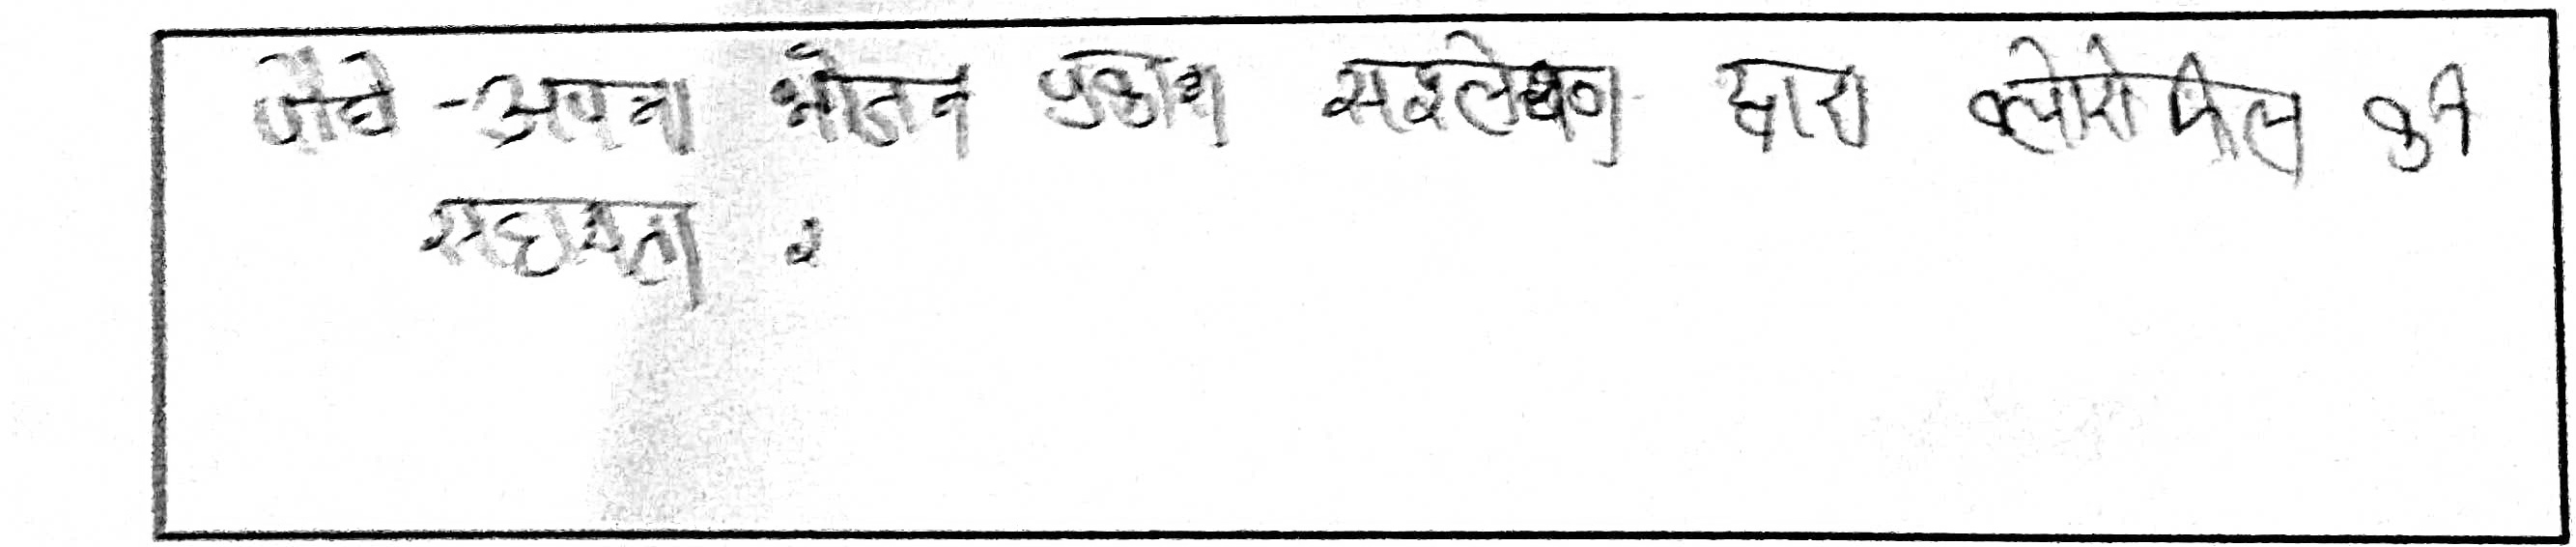 पौधे - अपना भोजन प्रकाश सश्लेषण द्वारा क्लोरोफिल की
सहायता